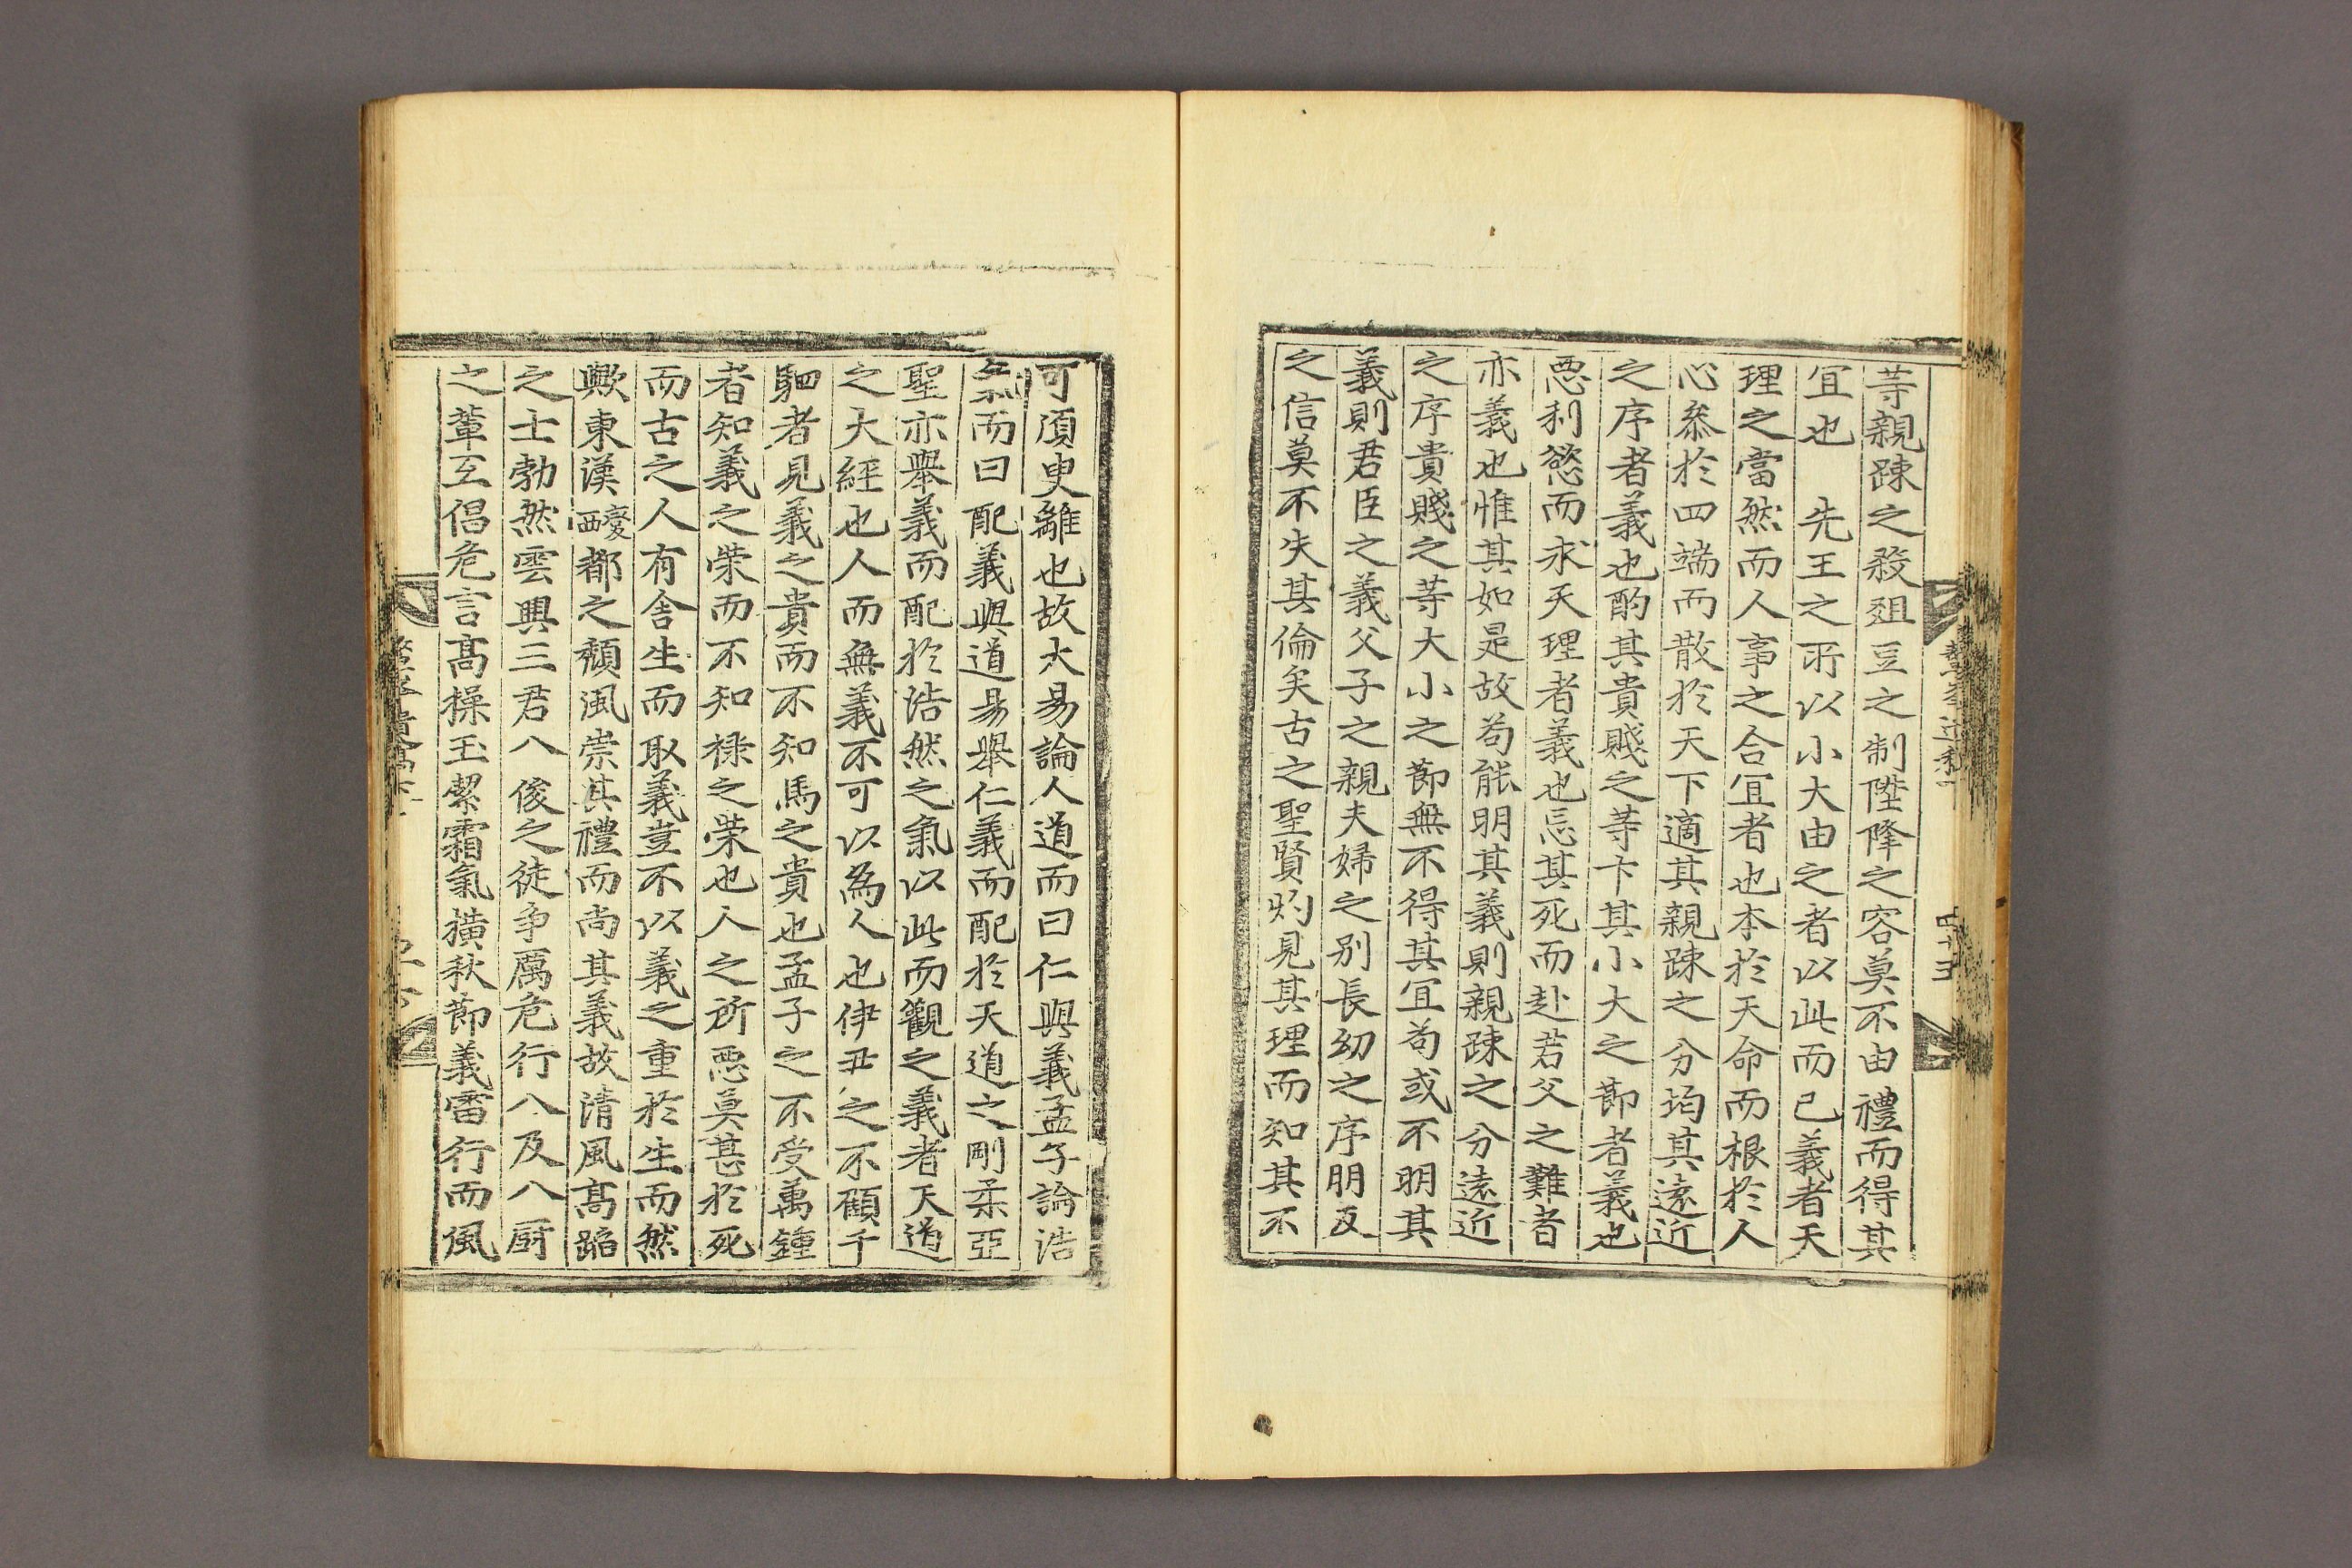 等親踈之殺俎豆之制陞降之容莫不由禮而得其
宜也　先王之所以小大由之者以此而已義者天
理之當然而人事之合宜者也本於天命而根於人
心叅於四端而散於天下適其親踈之分均其遠近
之序者義也酌其貴賤之等卞其小大之節者義也
惡利慾而求天理者義也忘其死而赴若父之難者
亦義也惟其如是故苟能明其義則親踈之分遠近
之序貴賤之等大小之節無不得其宜苟或不明其
義則君臣之義父子之親夫婦之別長幼之序朋友
之信莫不失其倫矣古之聖賢灼見其理而知其不
可湏㬰離也故大易論人道而曰仁與義孟子論浩
氣而曰配義與道易舉仁義而配於天道之剛柔亞
聖亦舉義而配於浩然之氣以此而觀之義者天道
之大經也人而無義不可以為人也伊尹之不顧千
駟者見義之貴而不知馬之貴也孟子之不受萬鍾
者知義之榮而不知祿之榮也人之所惡莫甚於死
而古之人有舍生而取義豈不以義之重於生而然
歟東漢慶西都之頹風崇其禮而尚其義故清風高蹈
之士勃然雲興三君八俊之徒爭厲危行八及八厨
之輩互倡危言高操玉潔霜氣橫秋節義雷行而風
四十五